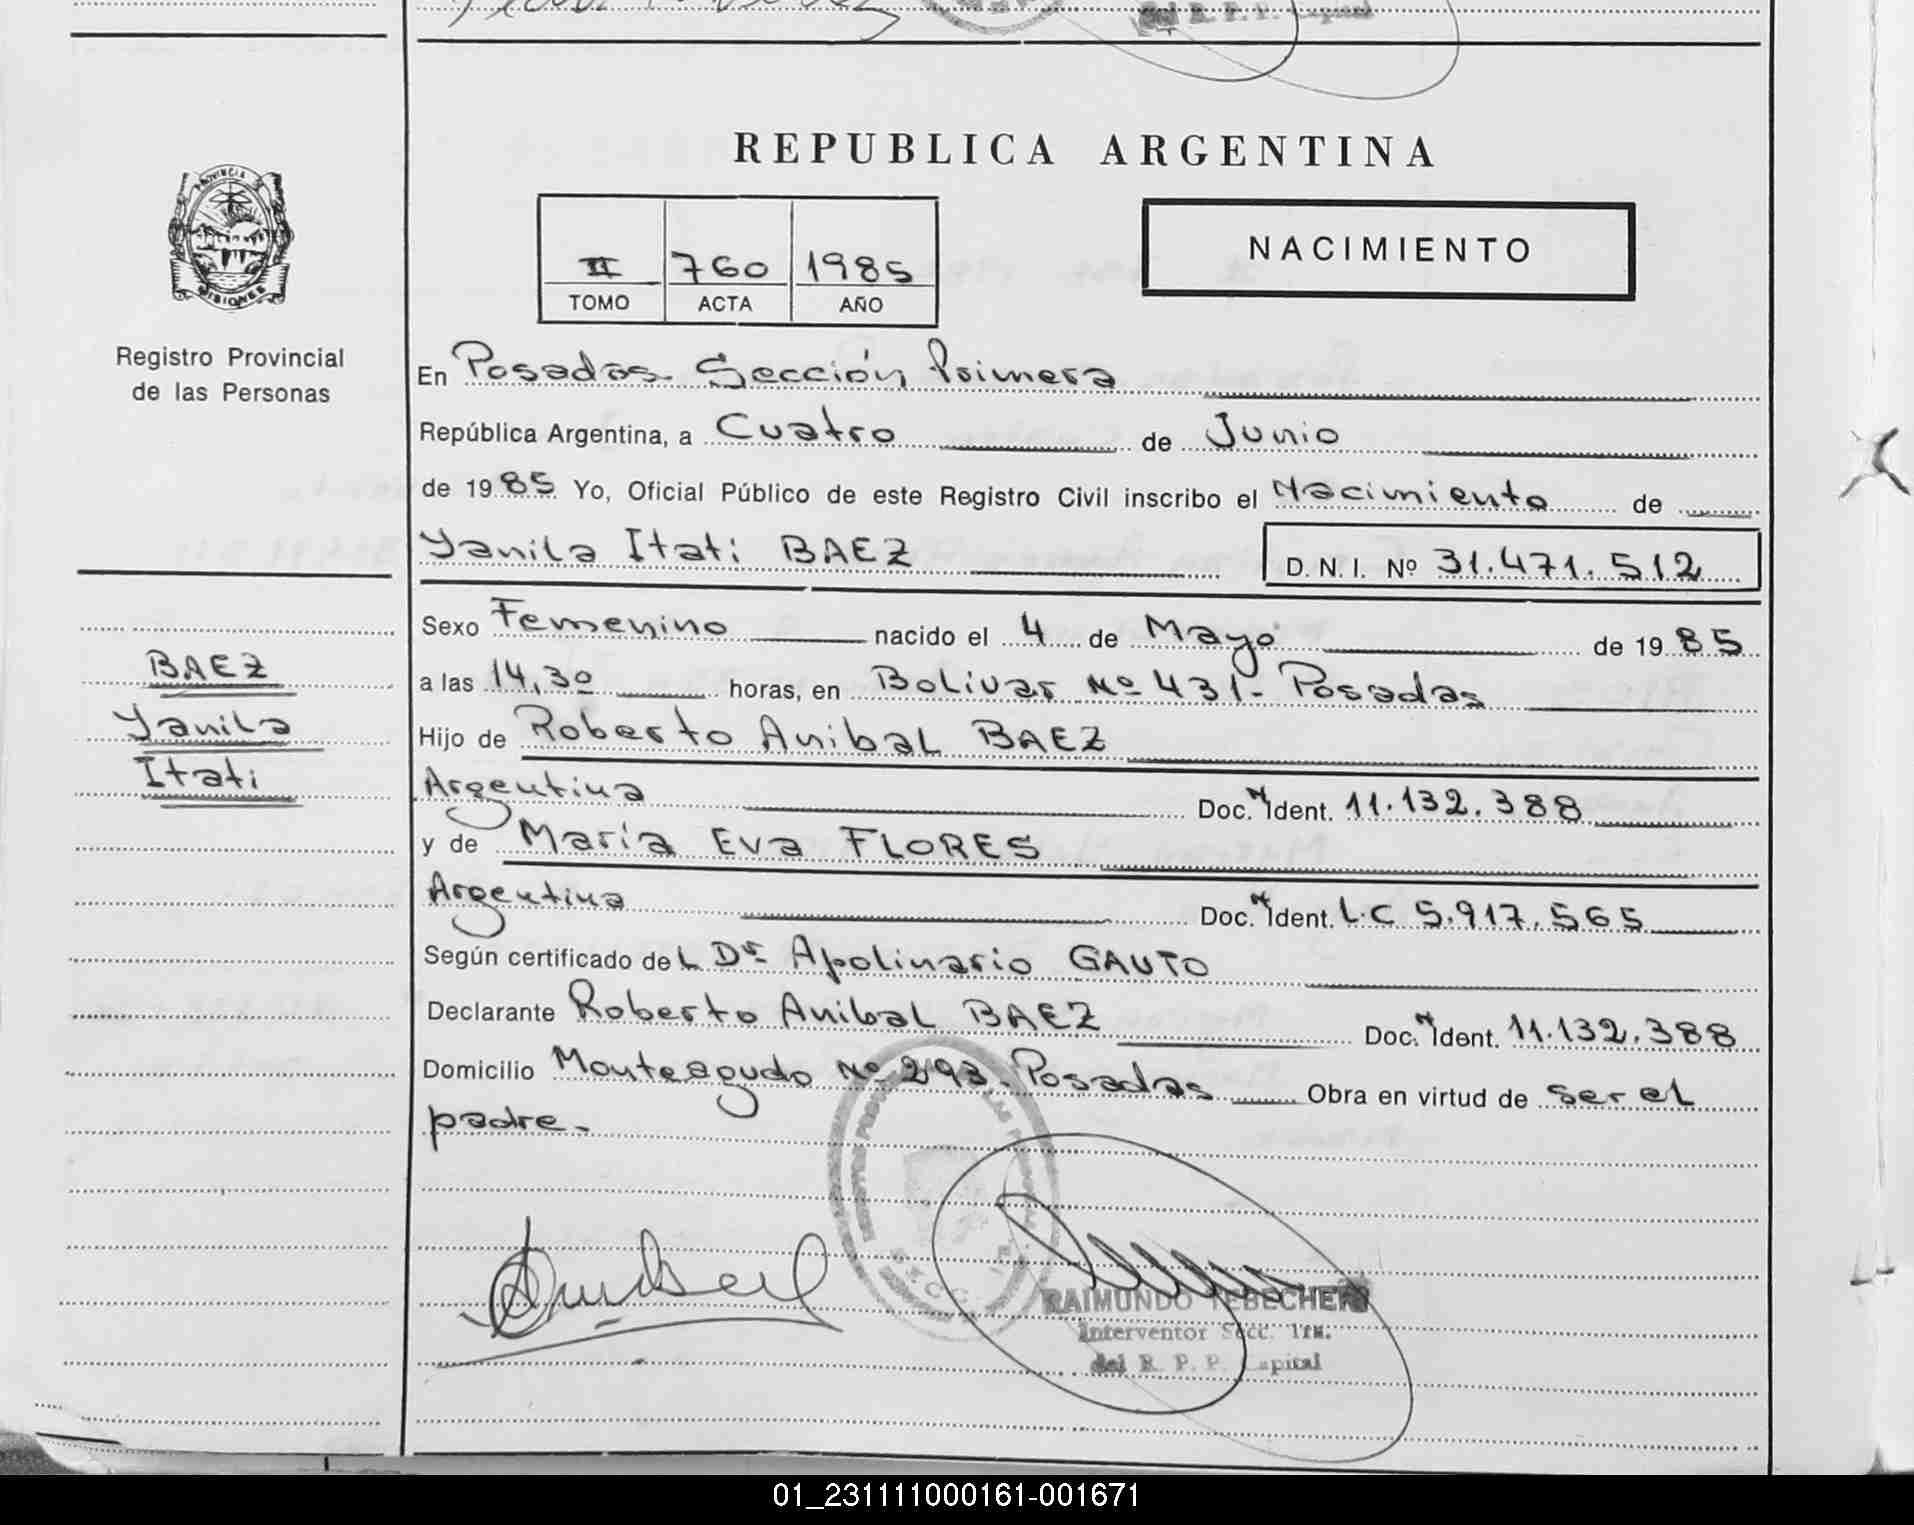 del R. P. P. Capital
REPUBLICA ARGENTINA
PROVINCIA DE
MISIONES
Registro Provincial
de las Personas
II 760 1985
TOMO ACTA AÑO
NACIMIENTO
En Posadas. Sección Primera
República Argentina, a Cuatro de Junio
de 1985 Yo, Oficial Público de este Registro Civil inscribo el Nacimiento de
Yanila Itati BAEZ D. N. I. Nº 31.471.512
Sexo Femenino nacido el 4 de Mayo de 1985
BAEZ
a las 14,30 horas, en Bolivar Nº 431- Posadas
Yanila
Hijo de Roberto Anibal BAEZ
Itati
Argentina Doc. Ident. 11.132.388
y de María Eva FLORES
Argentina Doc. Ident. L.C 5.917.565
Según certificado del Dr Apolinario GAUTO
Declarante Roberto Anibal BAEZ Doc. Ident. 11.132.388
Domicilio Monteagudo Nº 293- Posadas Obra en virtud de ser el
padre.
RAIMUNDO TEBECHERI
Interventor Secc. 1ra.
del R. P. P. Capital
01_231111000161-001671